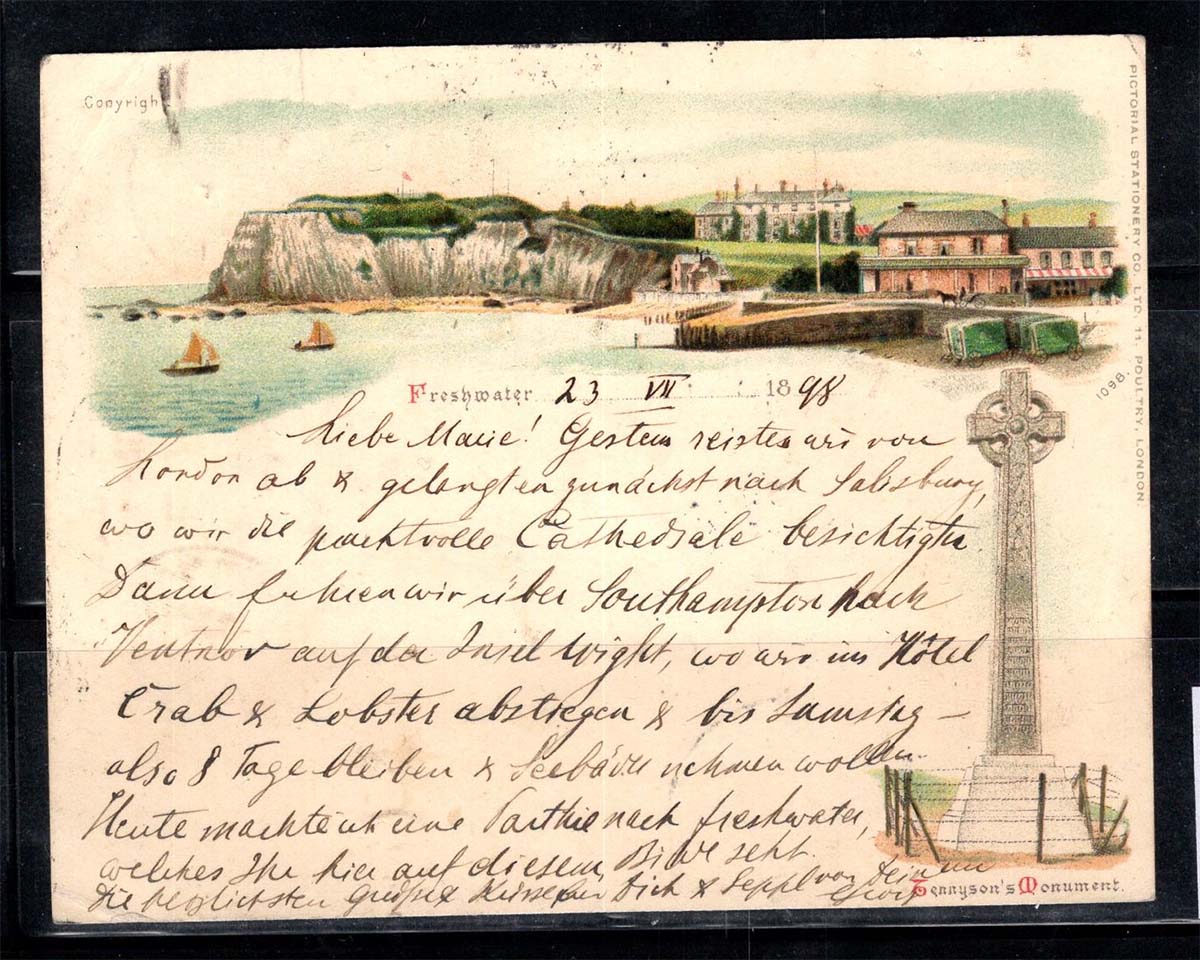 Copyrigh
PICTORIAL STATIONERY CO. LTD. 11. POULTRY, LONDON
1098.
Freshwater 23 VII 1898
Liebe Marie! Gestern reisten wir von
London ab & gelangten zunächst nach Salisbury,
wo wir die prachtvolle Cathedrale besichtigten.
Dann fuhren wir über Southampton nach
Ventnor auf der Insel Wight, wo wir im Hôtel
Crab & Lobster abstiegen & bis Samstag –
also 8 Tage bleiben & Seebäder nehmen wollen.
Heute machte ich eine Parthie nach Freshwater,
welches Ihr hier auf diesem Bilde seht.
Die herzlichsten Grüße & Küsse für Dich & Seppl von Deinem
Tennyson's Monument.